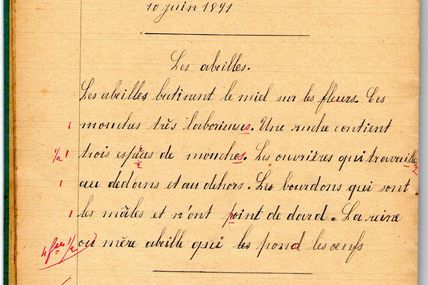 10 juin 1891
Les abeilles.
Les abeilles butinent le miel sur les fleurs. Ces
1 mouches très laborieuses. Une ruche contient
½ 1 trois espèces de mouches. Les ouvrières qui travaille
1 au dedans et au dehors. Les bourdons qui sont
1 les mâles et n'ont point de dard. La reine
4 fautes ½ ou mère abeille qui les pond les œufs